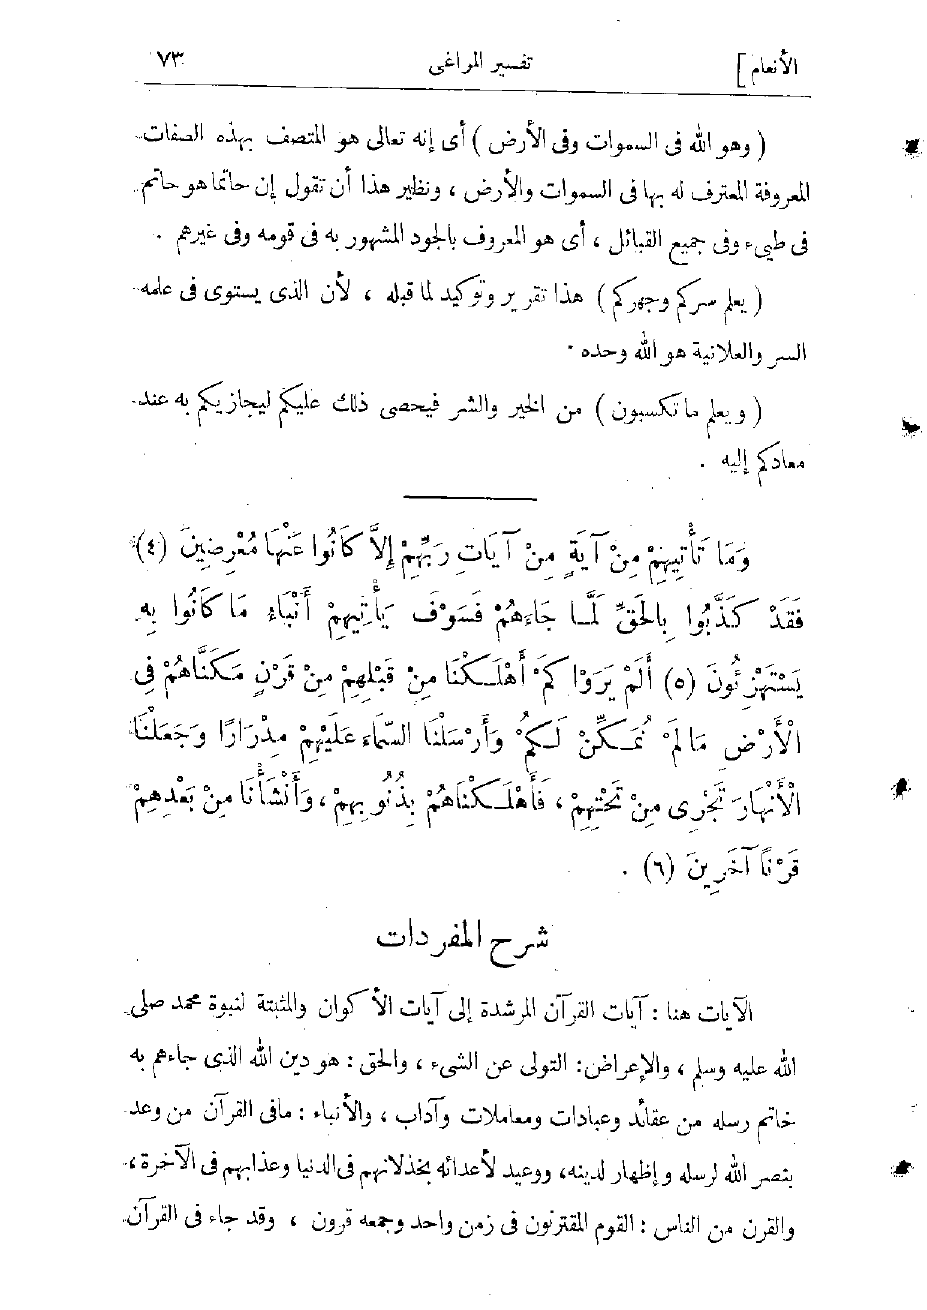 الأنعام] تفسير المراغى ٧٣
( وهو الله فى السموات وفى الأرض ) أى إنه تعالى هو المتصف بهذه الصفات
المعروفة المعترف له بها فى السموات والأرض ، ونظير هذا أن تقول إن حاتما هو حاتم
فى طيىء وفى جميع القبائل ، أى هو المعروف بالجود المشهور به فى قومه وفى غيرهم .
( يعلم سركم وجهركم ) هذا تقرير وتوكيد لما قبله ، لأن الذى يستوى فى علمه
السر والعلانية هو الله وحده .
( ويعلم ما تكسبون ) من الخير والشر فيحصى ذلك عليكم ليجازيكم به عند
معادكم إليه .
وَمَا تَأْتِيهِمْ مِنْ آيَةٍ مِنْ آيَاتِ رَبِّهِمْ إِلاَّ كَانُوا عَنْهَا مُعْرِضِينَ (٤)
فَقَدْ كَذَّبُوا بِالْحَقِّ لَمَّا جَاءَهُمْ فَسَوْفَ يَأْتِيهِمْ أَنْبَاءُ مَا كَانُوا بِهِ
يَسْتَهْزِئُونَ (٥) أَلَمْ يَرَوْا كَمْ أَهْلَكْنَا مِنْ قَبْلِهِمْ مِنْ قَرْنٍ مَكَّنَّاهُمْ فِى
الْأَرْضِ مَا لَمْ نُمَكِّنْ لَكُمْ وَأَرْسَلْنَا السَّمَاءَ عَلَيْهِمْ مِدْرَارًا وَجَعَلْنَا
الْأَنْهَارَ تَجْرِى مِنْ تَحْتِهِمْ ، فَأَهْلَكْنَاهُمْ بِذُنُوبِهِمْ ، وَأَنْشَأْنَا مِنْ بَعْدِهِمْ
قَرْنًا آخَرِينَ (٦) .
شرح المفردات
الآيات هنا : آيات القرآن المرشدة إلى آيات الأكوان والمثبتة لنبوة محمد صلى
الله عليه وسلم ، والإعراض: التولى عن الشىء ، والحق : هو دين الله الذى جاءهم به
خاتم رسله من عقائد وعبادات ومعاملات وآداب ، والأنباء : مافى القرآن من وعد
بنصر الله لرسله وإظهار لدينه، ووعيد لأعدائه بخذلانهم فى الدنيا وعذابهم فى الآخرة ،
والقرن من الناس : القوم المقترنون فى زمن واحد وجمعه قرون ، وقد جاء فى القرآن